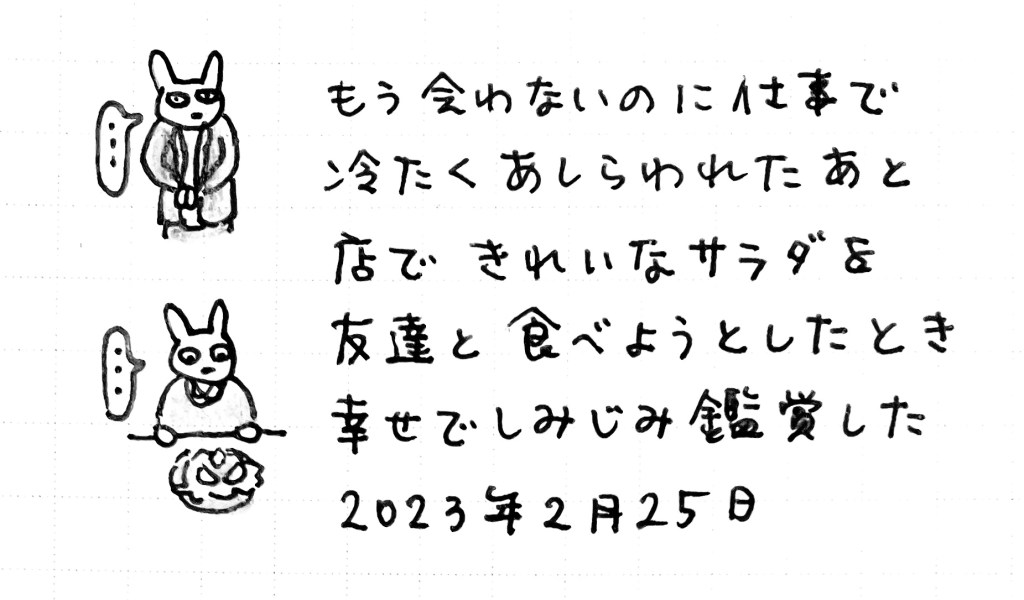 もう会わないのに仕事で
冷たくあしらわれたあと
店できれいなサラダを
友達と食べようとしたとき
幸せでしみじみ鑑賞した
2023年2月25日